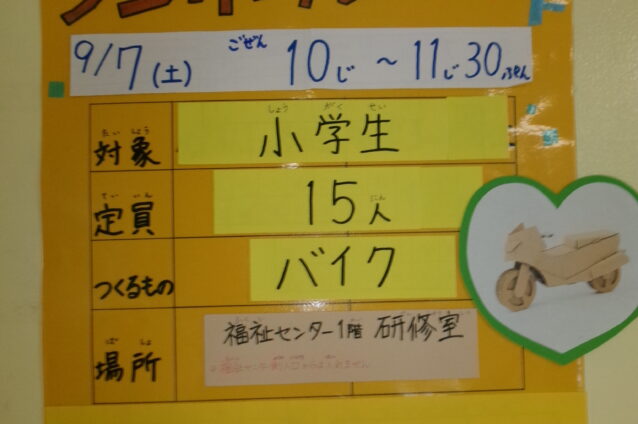 9/7(土) ごぜん 10じ～11じ30ぷん
たいしょう しょうがくせい
対象 小学生
ていいん にん
定員 15人
つくるもの バイク
ばしょ
場所 福祉センター1階 研修室